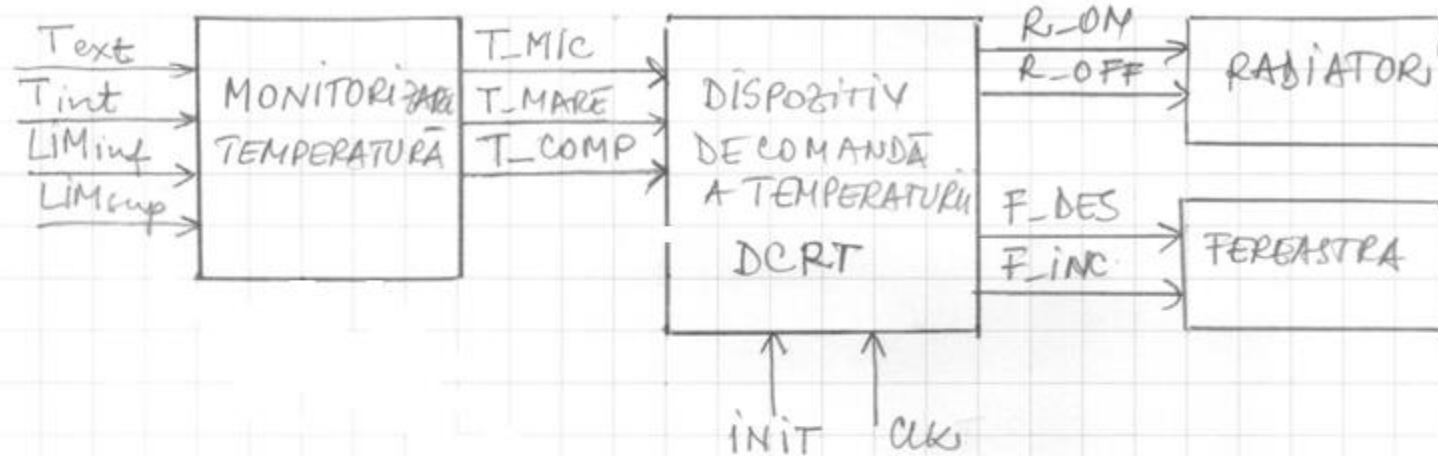 Text
Tint
LIMinf
LIMsup
MONITORIZARE
TEMPERATURĂ
T_MIC
T_MARE
T_COMP
DISPOZITIV
DE COMANDĂ
A TEMPERATURII
DCRT
R_ON
R_OFF
RADIATOR
F_DES
F_INC
FEREASTRA
INIT
CLK